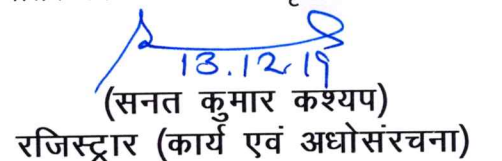 13.12.19
(सनत कुमार कश्यप)
रजिस्ट्रार (कार्य एवं अधोसंरचना)